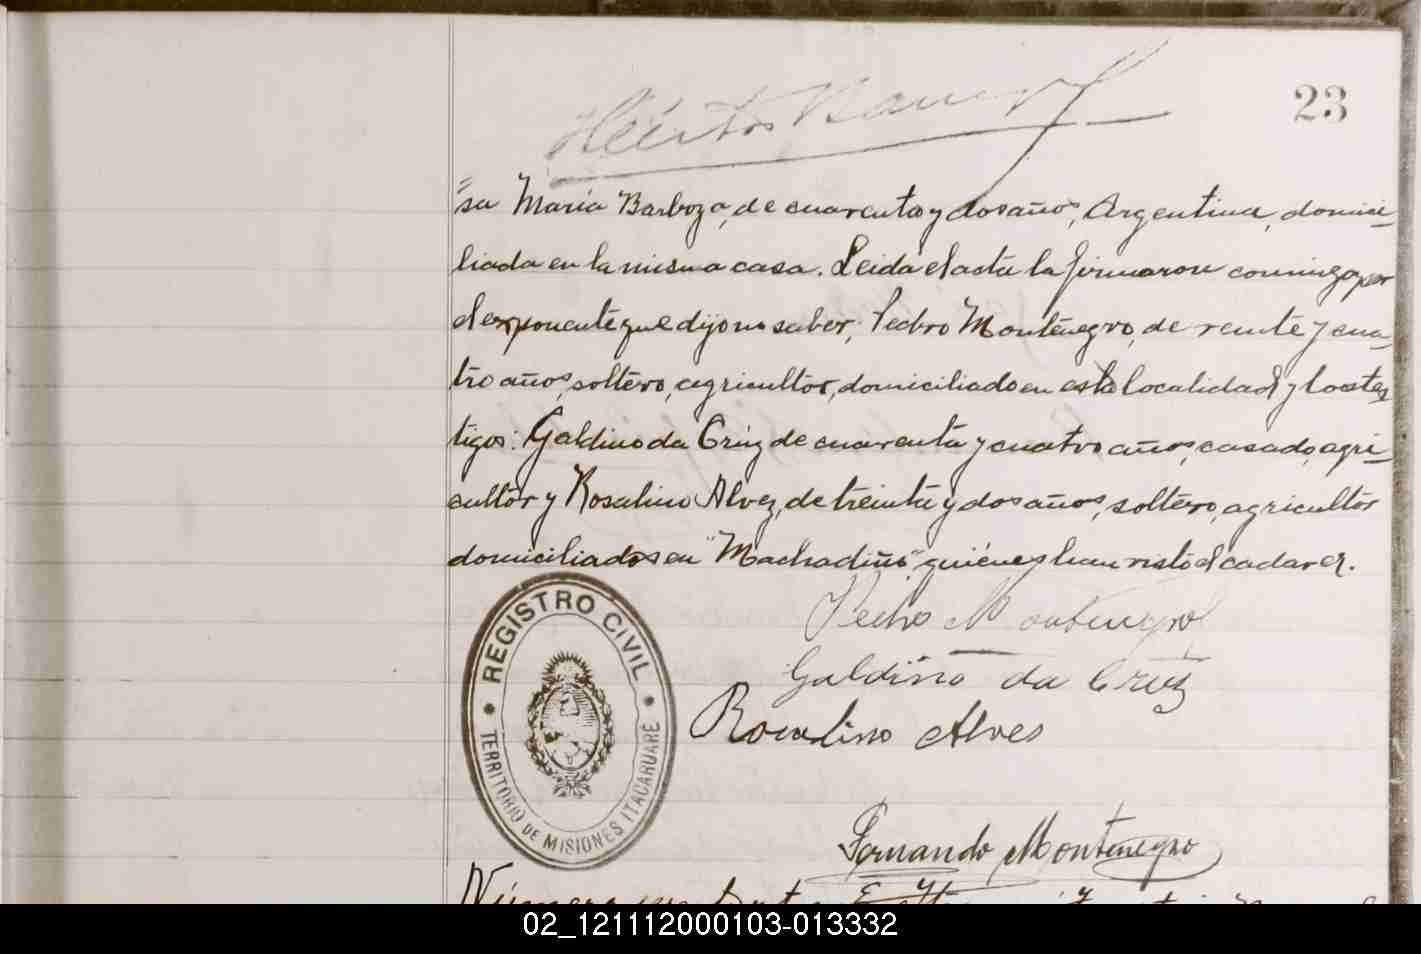 23
sa María Barboza, de cuarenta y dos años, Argentina, domici-
liada en la misma casa. Leida el acta la firmaron conmigo por
el exponente que dijo no saber, Pedro Montenegro, de veinte y cua-
tro años, soltero, agricultor, domiciliado en esta localidad y los tes-
tigos: Galdino da Cruz de cuarenta y cuatro años, casado, agri-
cultor y Rosalino Alvez, de treinta y dos años, soltero, agricultor
domiciliados en "Machadiño" quiénes han visto el cadaver.
Pedro Montenegro
Galdino da Cruz
Rosalino Alves
REGISTRO CIVIL
TERRITORIO DE MISIONES ITACARUARÉ
Fernando Montenegro
Número
02_121112000103-013332